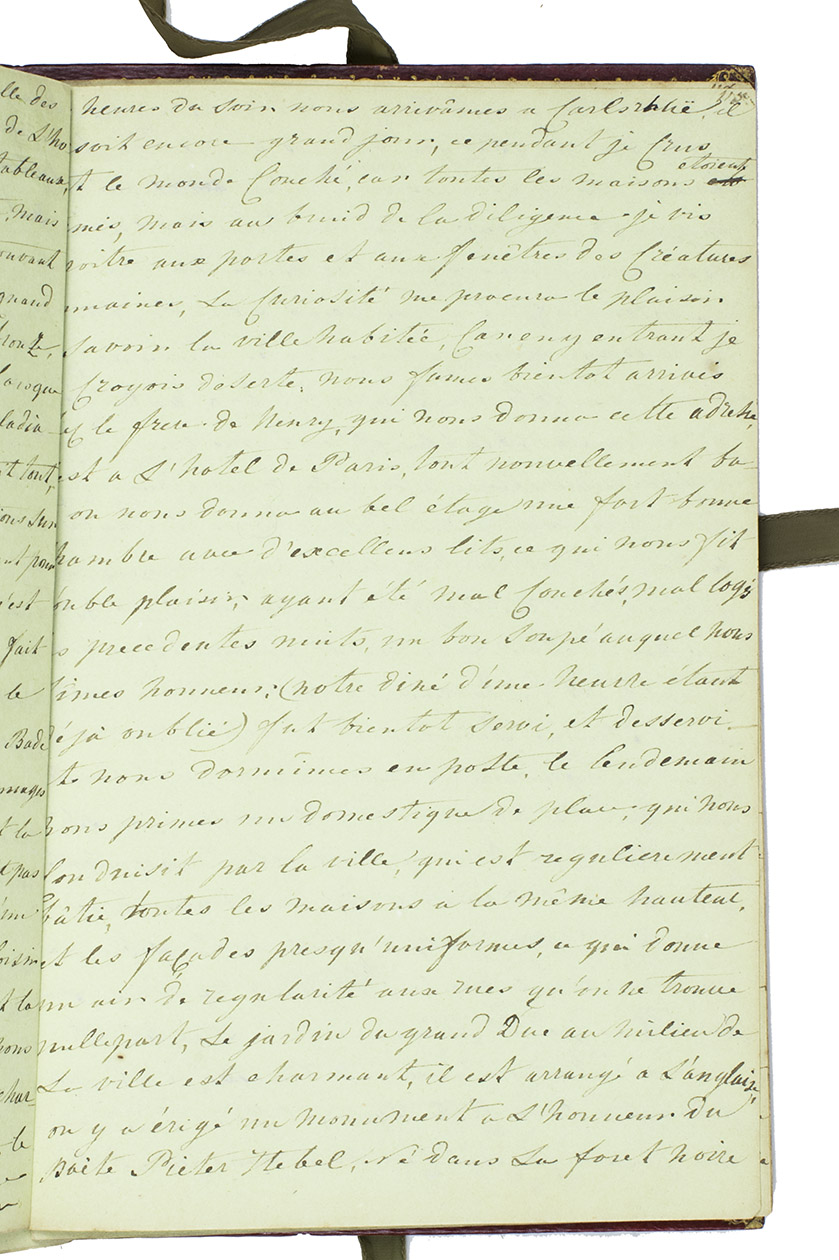 heures du soir nous arrivâmes a Carlsrhuë, il
soit encore grand jour, ce pendant je Crus
t le monde Couché, car toutes les maisons etoient
més, mais au bruid de la diligence je vis
roitre aux portes et aux fenêtres des Créatures
umaines, La Curiosité me procura le plaisir
savoir la ville habitée, Car en y entrant je
Croyois déserte, nous fumes bientot arrivés
ez le frere de Henry, qui nous donna cette adresse,
est a L'hotel de Paris, tout nouvellement ba-
on nous donna au bel étage une fort bonne
hambre avec d'excellens lits, ce qui nous fit
ouble plaisir, ayant été mal Couchés, mal logés
s precedentes nuits, un bon Soupé auquel nous
fimes honneur, (notre diné d'une heurre étant
déjà oublié) fut bientot servi, et desservi
t nous dormimes en poste, le lendemain
nous primes un domestique de place, qui nous
Conduisit par la ville, qui est regulierement
bâtie, toutes les maisons a la même hauteur,
et les façades presqu'uniformes, ce qui donne
un air de regularité aux rues qu'on ne trouve
nullepart, Le jardin du grand Duc au milieu de
La ville est charmant, il est arrangé a L'anglaise,
on y a érigé un monument a L'honneur du
Poëte Pieter Hebel, né dans La foret noire
lle des
de L'ho
tableaux,
mais
ouvant
grand
lorsque
et tout,
ions sur
nt pour
n'est
fait
le
Bade
mages
t la
pas
oisin
t la
nous
char
le